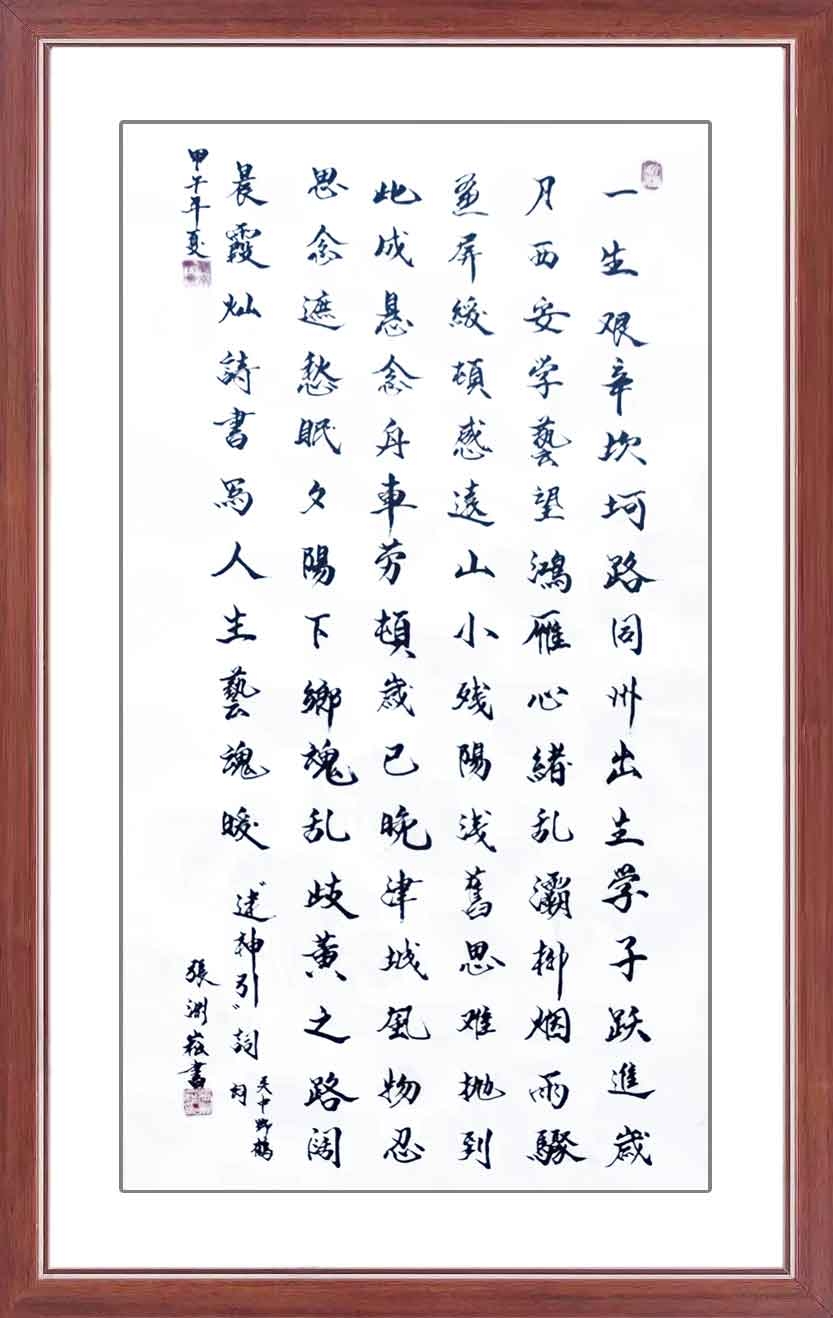 一生艰辛坎坷路同州出生学子跃進歲
月西安学藝望鴻雁心緒乱灞柳烟雨驟
羔屏緩頓感遠山小残陽浅舊思难抛到
此成悬念舟車劳頓歲已晚津城風物忍
思念遮愁眠夕陽下鄉魂乱歧黄之路阔
晨霞灿詩書写人生藝魂暖 "迷神引"詞
天中野鶴
甲午年夏
張渊崧書